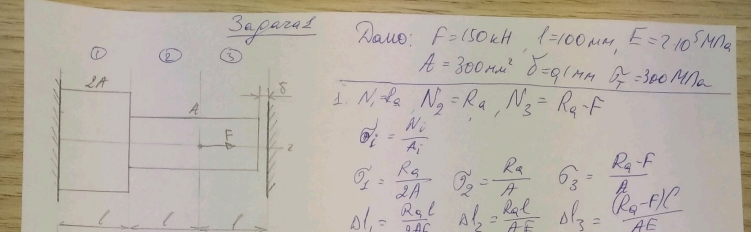 Задача 1
Дано: F = 150 кН, l = 100 мм, E = 2·10⁵ МПа
A = 300 мм² δ = 0,1 мм σT = 300 МПа
① ② ③
2A
A
δ
F
l l l
1. N₁ = Ra, N₂ = Ra, N₃ = Ra - F
σi = Ni/Ai
σ₁ = Ra/2A σ₂ = Ra/A σ₃ = Ra-F/A
Δl₁ = Ral/2AE Δl₂ = Ral/AE Δl₃ = (Ra-F)l/AE